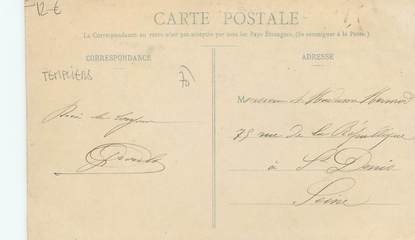 12 €
CARTE POSTALE
La Correspondance au recto n'est pas acceptée par tous les Pays Étrangers. (Se renseigner à la Poste.)
CORRESPONDANCE
TEMPLIERS
ADRESSE
Monsieur et Madame
75 rue de la République
à St Denis
Seine